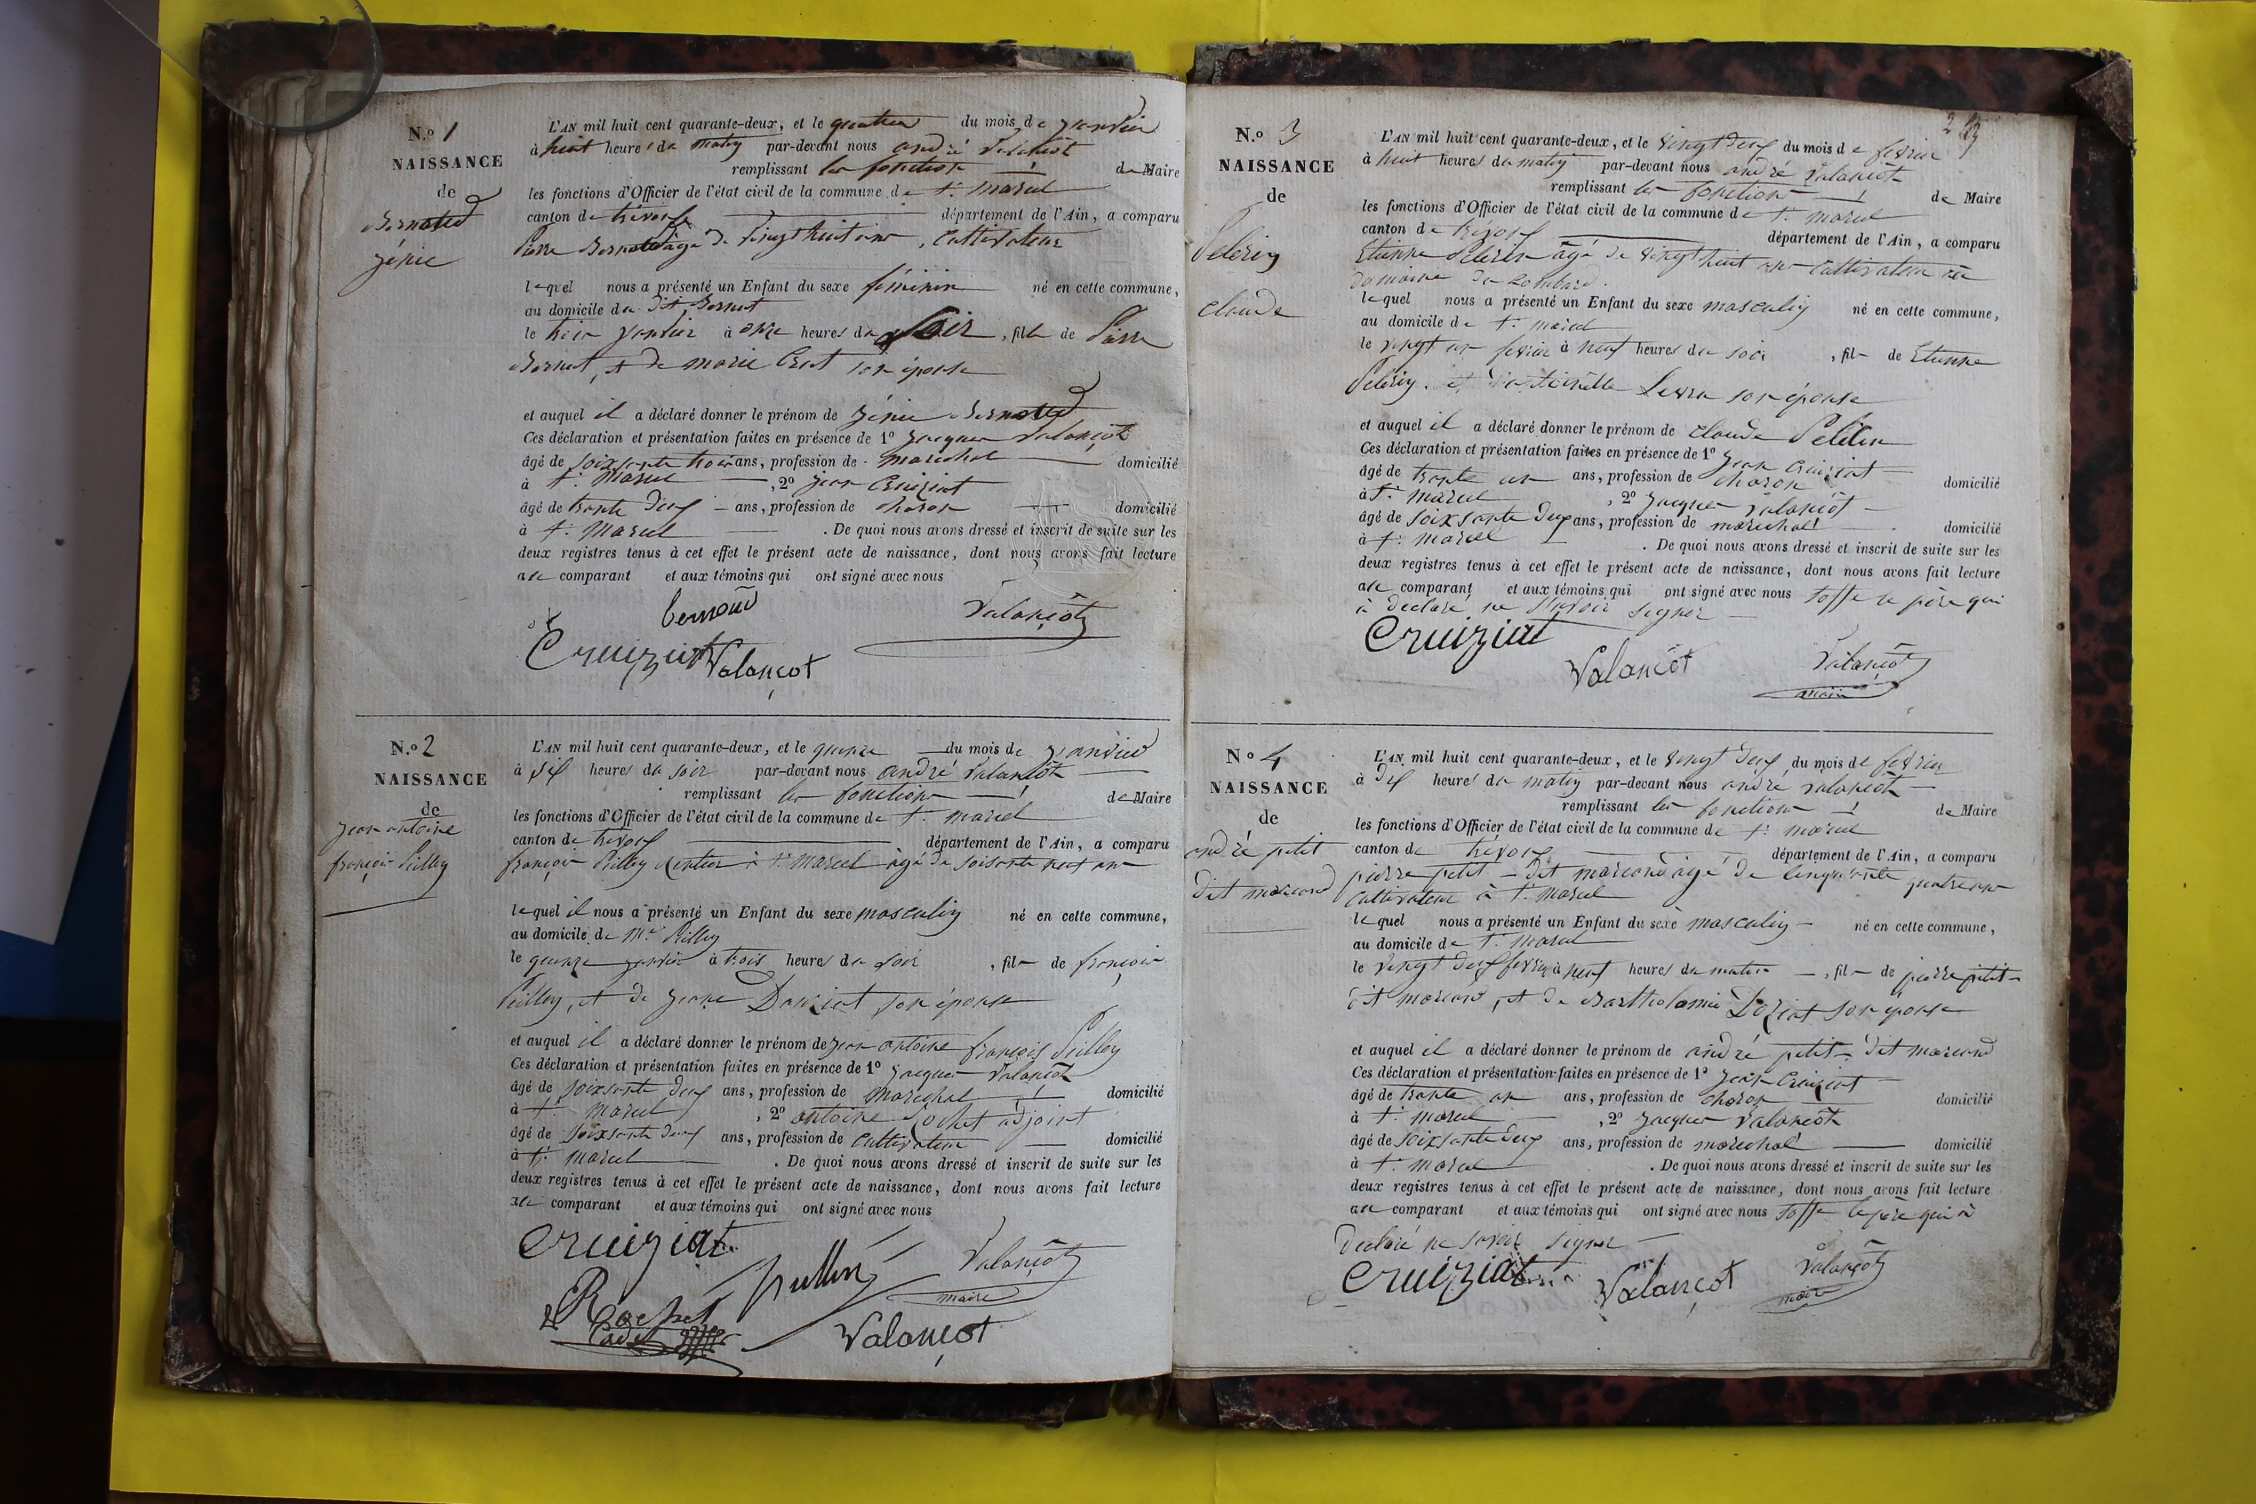 N.º 1
NAISSANCE
de
Bernoud
génie
L'AN mil huit cent quarante-deux, et le quatre du mois de janvier
à huit heures du matin par-devant nous andré Valançot
remplissant les fonction de Maire
les fonctions d'Officier de l'état civil de la commune de St. Marcel
canton de trévoux département de l'Ain, a comparu
Pierre Bernoud agé de vingt huit ans, Cultivateur
lequel nous a présenté un Enfant du sexe féminin né en cette commune,
au domicile du dit Bernout
le trois janvier à onze heures du Soir, fille de Pierre
Bernout, et de marie son épouse
et auquel il a déclaré donner le prénom de génie Bernoud
Ces déclaration et présentation faites en présence de 1º jacques Valançot
âgé de soixsante trois ans, profession de marechal domicilié
à St. Marcel, 2º jean Cruiziat
âgé de trante deux ans, profession de charon domicilié
à St. Marcel. De quoi nous avons dressé et inscrit de suite sur les
deux registres tenus à cet effet le présent acte de naissance, dont nous avons fait lecture
au comparant et aux témoins qui ont signé avec nous
bernoud Valançot
Cruiziat Valançot
N.º 2
NAISSANCE
de
jean antoine
françois Pilley
L'AN mil huit cent quarante-deux, et le quinze du mois de janvier
à six heures du soir par-devant nous andré Valançot
remplissant les fonctions de Maire
les fonctions d'Officier de l'état civil de la commune de St. marcel
canton de trévoux département de l'Ain, a comparu
françois Rentier à St. Marcel âgé de soisante neuf ans
lequel il nous a présenté un Enfant du sexe masculin né en cette commune,
au domicile de Mr.
le quinze janvier à trois heures du soir, fils de françois
et de jeane son épouse
et auquel il a déclaré donner le prénom de jean antoine françois
Ces déclaration et présentation faites en présence de 1º jacques Valançot
âgé de soixsante deux ans, profession de marechal domicilié
à St. marcel, 2º antoine Rochet adjoint
âgé de soixsante deux ans, profession de cultivateur domicilié
à St. marcel. De quoi nous avons dressé et inscrit de suite sur les
deux registres tenus à cet effet le présent acte de naissance, dont nous avons fait lecture
au comparant et aux témoins qui ont signé avec nous
Cruiziat Valançot
maire
Rochet
Valançot
N.º 3
NAISSANCE
de
Pelerin
claude
L'AN mil huit cent quarante-deux, et le vingt deux du mois de fevrier
à huit heures du matin par-devant nous andré Valançot
remplissant les fonction de Maire
les fonctions d'Officier de l'état civil de la commune de St. marcel
canton de trévoux département de l'Ain, a comparu
Etienne Pelerin âgé de vingt huit ans Cultivateur au
domaine du Lombard.
lequel nous a présenté un Enfant du sexe masculin né en cette commune,
au domicile de St. marcel
le vingt un fevrier à neuf heures du soir, fils de Etienne
Pelerin. et son épouse
et auquel il a déclaré donner le prénom de claude Pelerin
Ces déclaration et présentation faites en présence de 1º jean Cruiziat
âgé de trante un ans, profession de charon domicilié
à St. marcel, 2º jacques Valançot
âgé de soixsante deux ans, profession de marechal domicilié
à St. marcel. De quoi nous avons dressé et inscrit de suite sur les
deux registres tenus à cet effet le présent acte de naissance, dont nous avons fait lecture
au comparant et aux témoins qui ont signé avec nous le père qui
à declaré ne savoir signer
Cruiziat
Valançot Valançot
maire
Nº 4
NAISSANCE
de
andré petit
dit marcand
L'AN mil huit cent quarante-deux, et le vingt deux du mois de fevrier
à dix heures du matin par-devant nous andré valançot
remplissant les fonction de Maire
les fonctions d'Officier de l'état civil de la commune de St. marcel
canton de trévoux département de l'Ain, a comparu
pierre petit dit marcand agé de cinquante quatre ans
Cultivateur à St. marcel
lequel nous a présenté un Enfant du sexe masculin né en cette commune,
au domicile de St. marcel
le vingt deux fevrier à neuf heures du matin, fils de pierre petit
dit marcand, et de Bartholomie son épouse
et auquel il a déclaré donner le prénom de andré petit dit marcand
Ces déclaration et présentation faites en présence de 1º jean Cruiziat
âgé de trante un ans, profession de charon domicilié
à St. marcel, 2º jacques valançot
âgé de soixsante deux ans, profession de marechal domicilié
à St. marcel. De quoi nous avons dressé et inscrit de suite sur les
deux registres tenus à cet effet le présent acte de naissance, dont nous avons fait lecture
au comparant et aux témoins qui ont signé avec nous le père qui a
declaré ne savoir signer
Cruiziat Valançot Valançot
maire